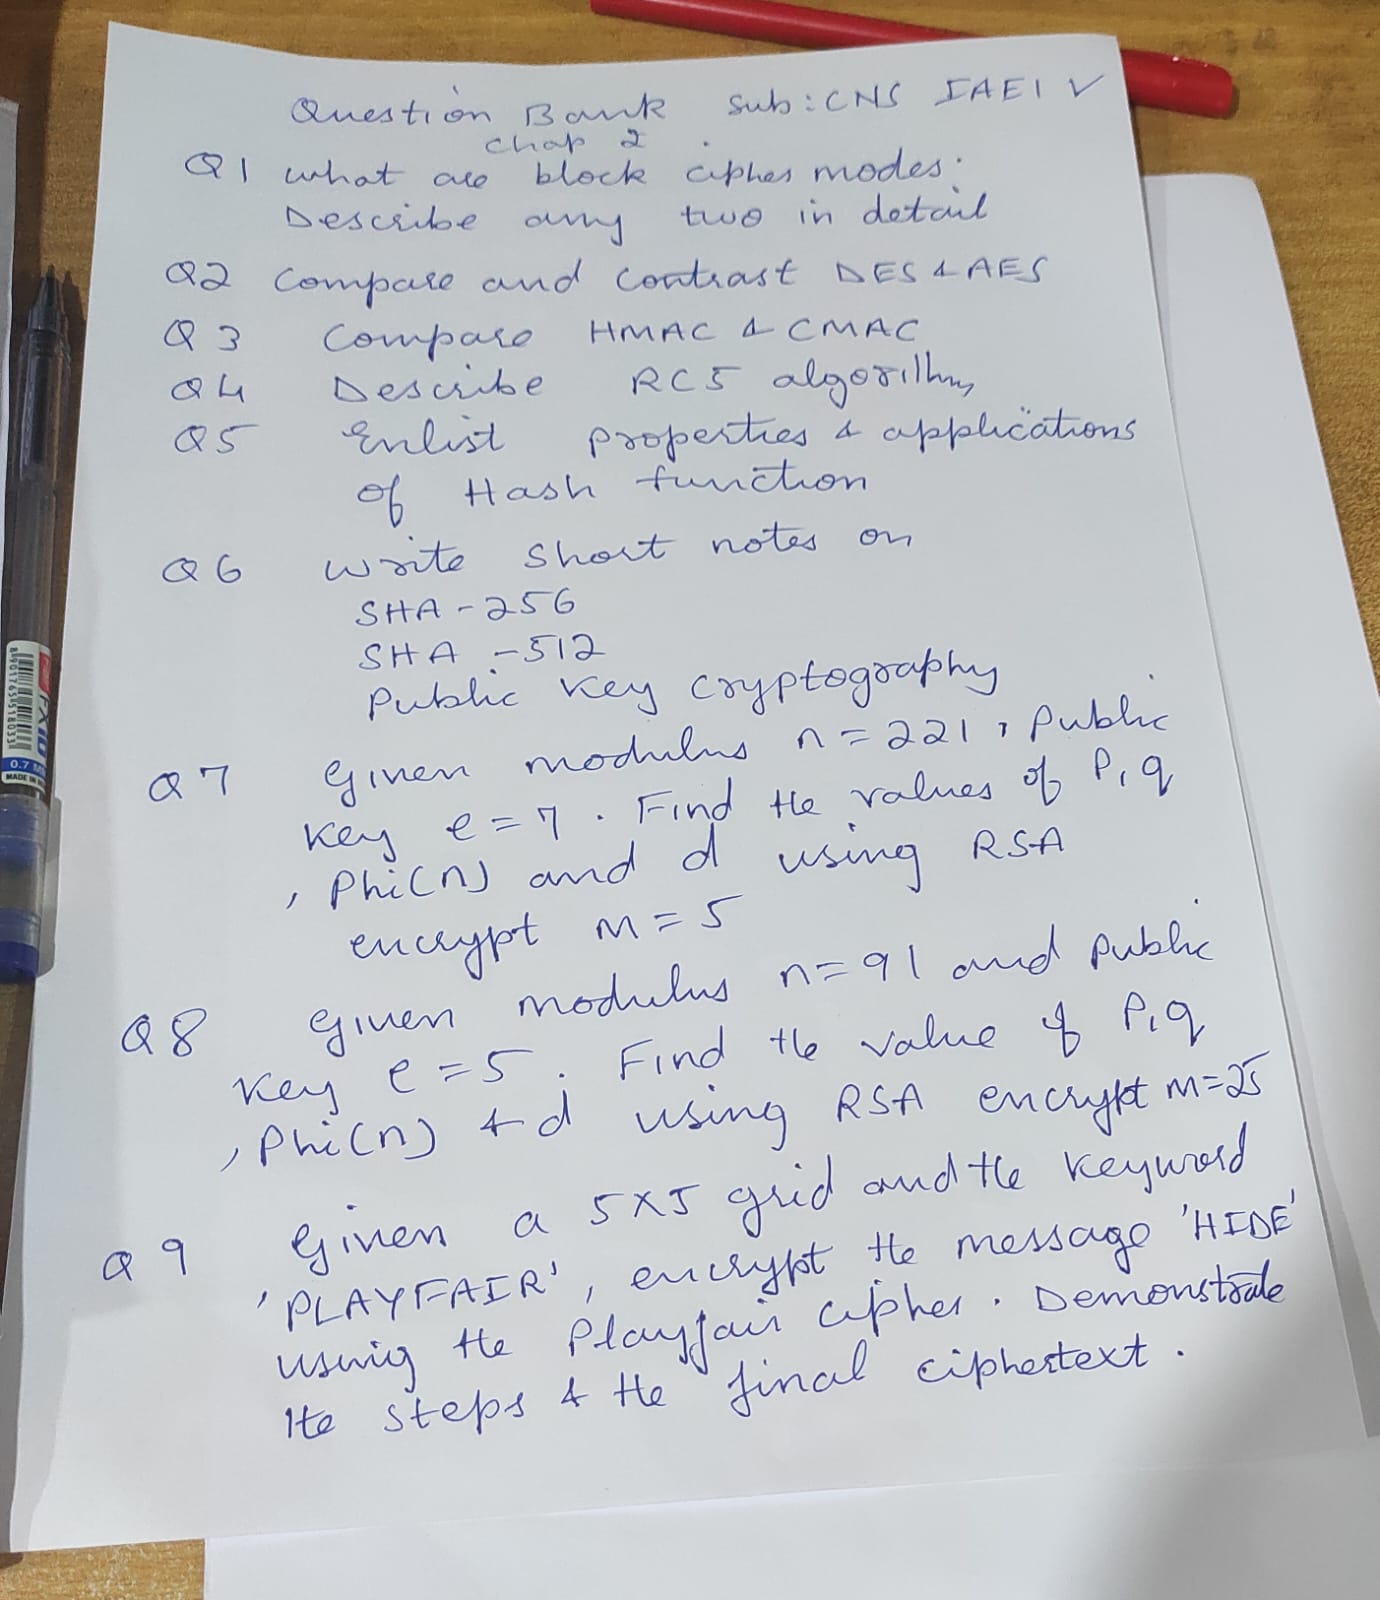 Question Bank Sub: CNS IAEI V
Chap 2
Q1 what are block cipher modes.
Describe any two in detail
Q2 Compare and Contrast DES & AES
Q3 Compare HMAC & CMAC
Q4 Describe RC5 algorithm
Q5 Enlist properties & applications
of Hash function
Q6 write short notes on
SHA-256
SHA-512
Public key cryptography
Q7 Given modulus n=221, Public
key e=7. Find the values of P,q
, Phi(n) and d using RSA
encrypt m=5
Q8 Given modulus n=91 and public
key e=5. Find the value of P,q
, Phi(n) & d using RSA encrypt m=25
Q9 Given a 5X5 grid and the keyword
'PLAYFAIR', encrypt the message 'HIDE'
using the Playfair cipher. Demonstrate
the steps & the final ciphertext.
FX10
0.7
MADE IN